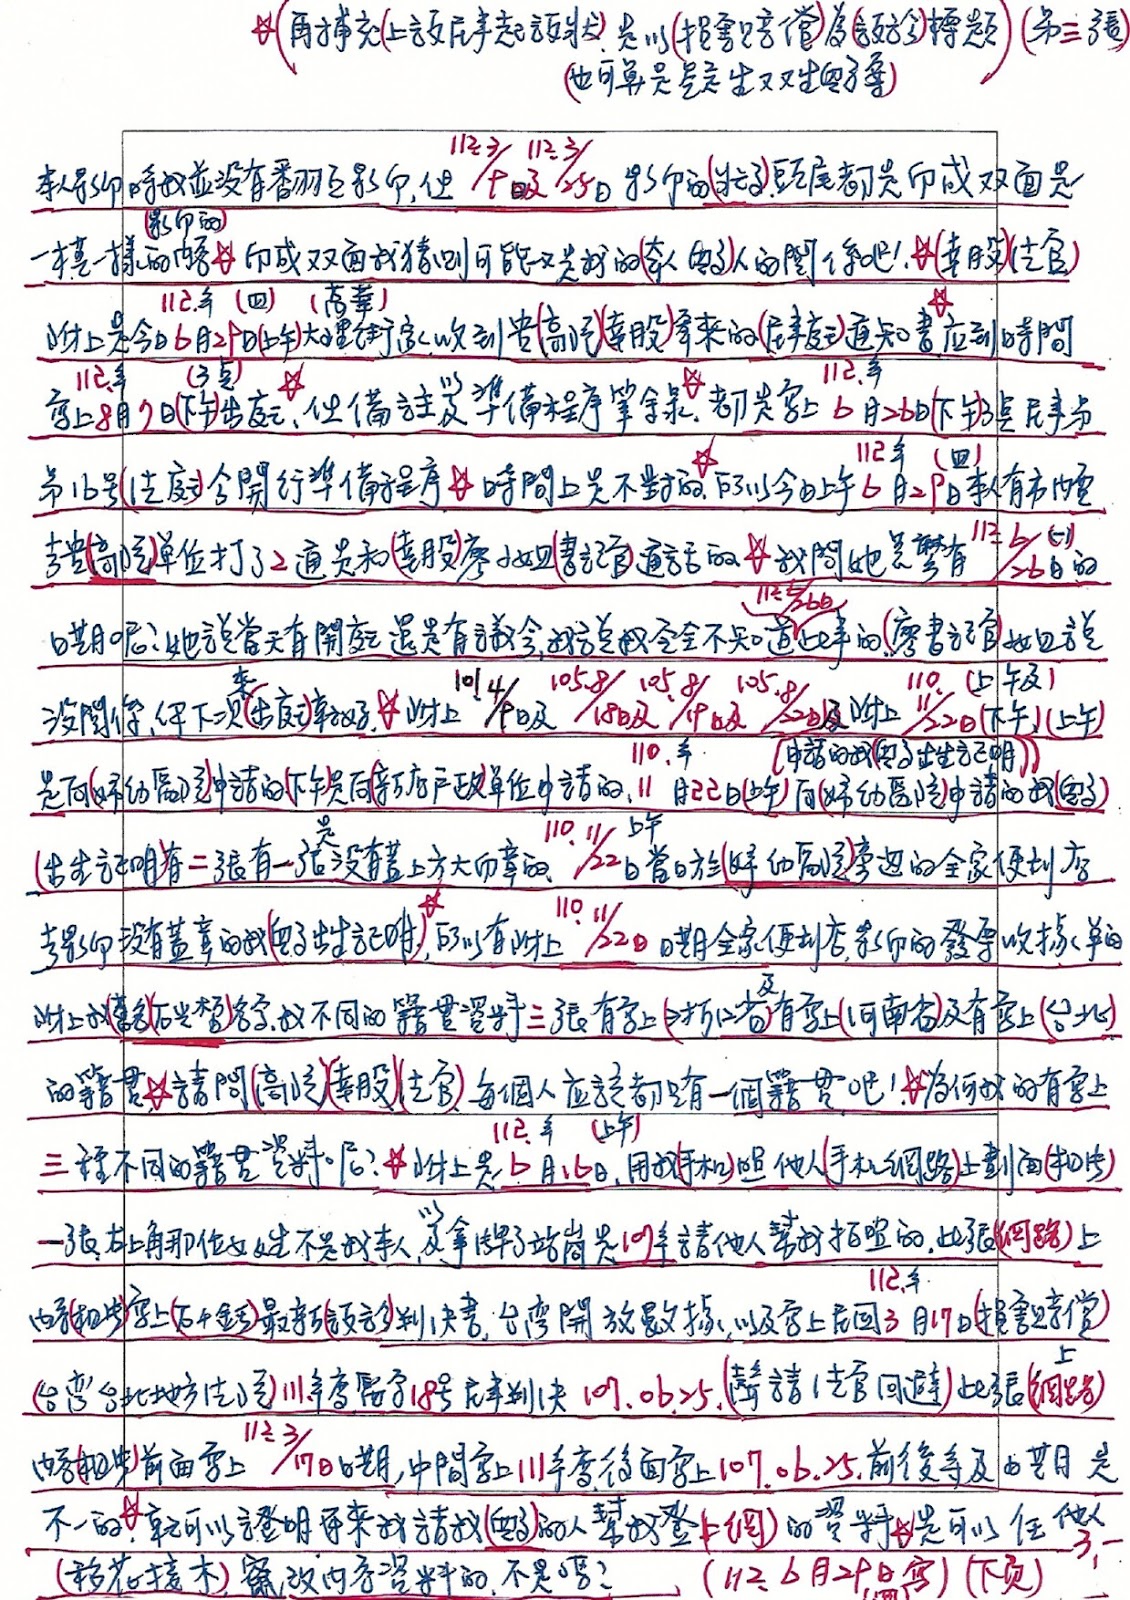 ☆(再補充(上訴民事起訴狀)是以(損害賠償)為(訴訟)標題)(第三張)
(也可算是是生双双生母子尊)
112.3/9日及 112.3/25日
本人影印時我並沒有翻面影印,但 影印的 頭尾都是印成双面是
(影印的)
一模一樣的內容☆印成双面我猜測可能又是我的(本人母子)人的關係吧!☆(幸股)(法官)
112.年 (四) (萬華)
附上是今日6月29日(上午)大理街家收到貴(高院)(幸股)寄來的(民事庭)通知書☆应到時間
112.年 (3点) 112.年
寫上8月7日(下午)出庭☆,但備註以及準備程序筆錄☆都是寫上6月26日(下午)3点民事
112年 (四)
第16号(法庭)今開行準備程序☆時間上是不對的☆所以今日上午6月29日本人有市內電
112.6/26日(一)
去貴(高院)單位打了2通是和(幸股)廖小姐(書記官)通話的☆我問她怎麼有 的
112.6/26日
日期呢?她說當天有開庭還是有議會,我說我完全不知道此事的(廖書記官)小姐說
101.4/9日及 105.8/18日及 105.8/19日及 105.8/22日及 110.11/22日 (上午及)
沒關係,伊下次來(出庭)就好☆附上 附上 (下午)(上午)
110.年 (申請的我(母子)出生証明)
是向(婦幼醫院)申請的(下午)是向新店戶政單位申請的,11月22日(上午)向(婦幼醫院)申請的我(母子)
110.11/22日 上午
(出生証明)有二張有一張是沒有蓋上方大印章的, 當日於(婦幼醫院)旁边的全家便利店
110.11/22日
去影印沒有蓋章的我(母子出生証明)☆所以有附上 日期全家便利店影印的發票收據單的
附上我 容,我不同的籍貫資料三張有寫上(浙江省)及有寫上(河南省)及有寫上(台北)
的籍貫☆請問(高院)(幸股)(法官)每個人应該都只有一個籍貫吧!☆為何我的有寫上
112.年 (上午)
三種不同的籍貫資料呢?☆附上是6月16日,用我(手机)照他人(手机網路)上畫面(相片)
一張,右上角那位女姓不是我本人,以及拿牌子站崗是107年請他人幫我拍照的,此張(網路)上
112.年
內容(相片)寫上 最新(訴訟)判決書,台灣開放數據,以及寫上民国3月17日(損害賠償)
(台灣台北地方法院)111年度 字18号民事判決 107.06.25.(聲請法官回避)此張(網路)上
112.3/17日
內容(相片)前面寫上 日期,中間寫上111年度後面寫上107.06.25.前後年及日期是
不一的☆就可以證明原來我請我(母子)的人幫我登(上網)的資料☆是可以任他人
(移花接木)竄改內容資料的,不是嗎? (112.6月29日(四)寫)(下頁)
3,一